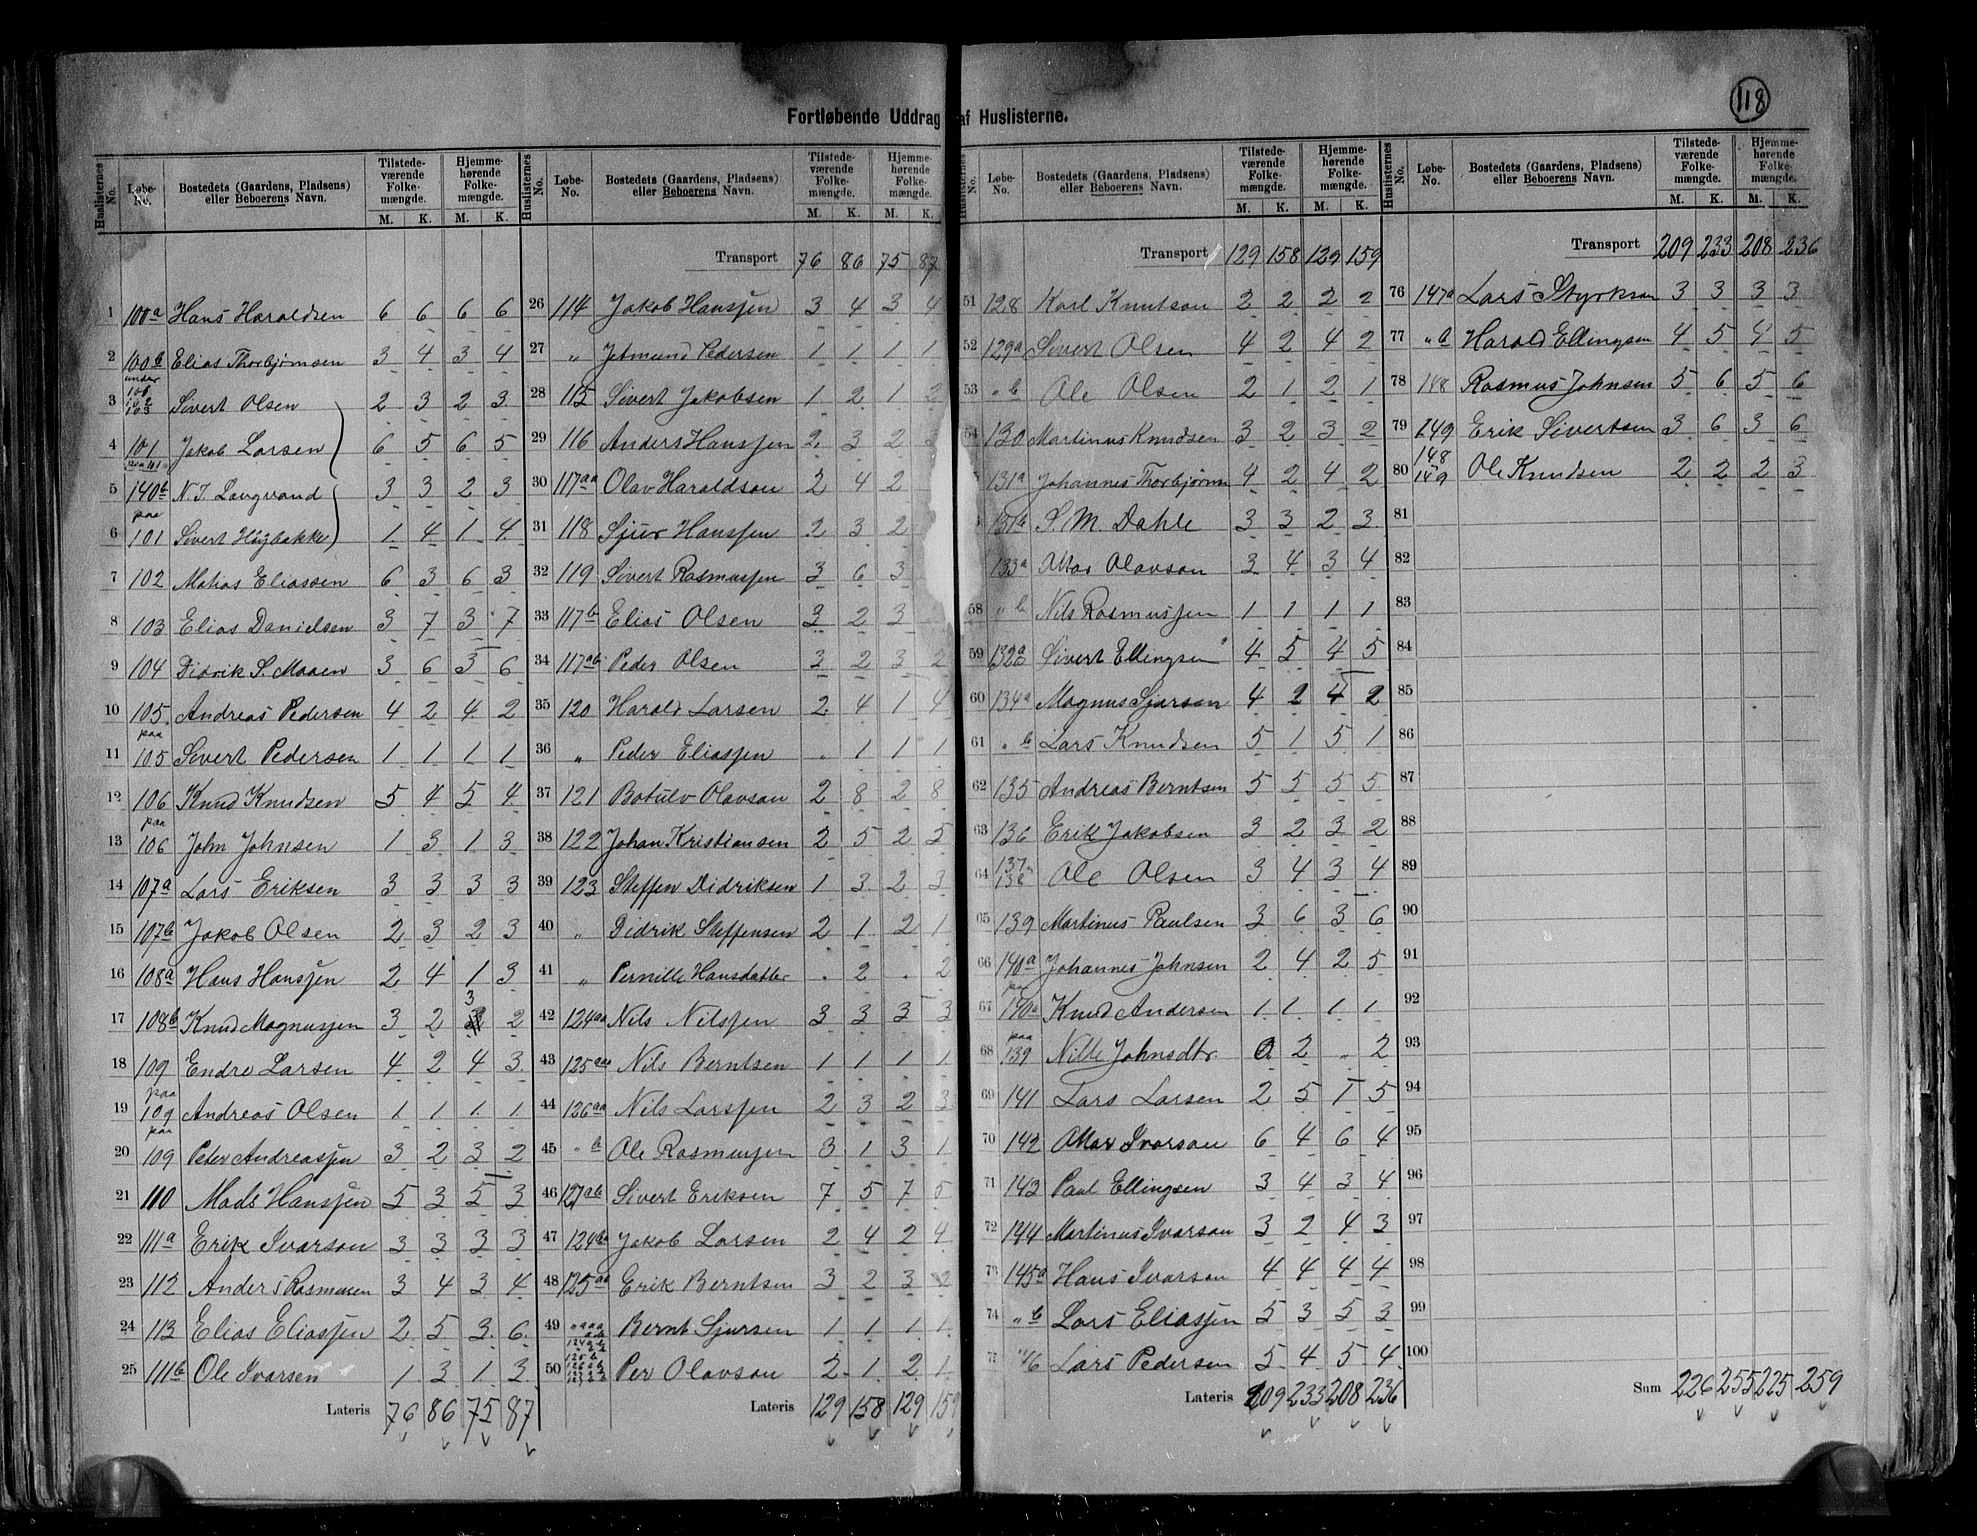 118
Fortløbende Uddrag af Huslisterne.
Huslisternes No. Løbe-No. Bostedets (Gaardens, Pladsens) eller Beboerens Navn. Tilstede-værende Folke-mængde. M. K. Hjemme-hørende Folke-mængde. M. K.
1 100a Hans Haraldsen 6 6 6 6
2 100b Elias Thorbjørnsen 3 4 3 4
3 under 101 102 103 Sivert Olsen 2 3 2 3
4 101 Jakob Larsen 6 5 6 5
5 140b N. J. Langvand 3 3 2 3
6 paa 101 Sivert Høgbakke 1 4 1 4
7 102 Matias Eliassen 6 3 6 3
8 103 Elias Danielsen 3 7 3 7
9 104 Didrik S. Moaen 3 6 3 6
10 105 Andreas Pedersen 4 2 4 2
11 paa 105 Sivert Pedersen 1 1 1 1
12 106 Knud Knudsen 5 4 5 4
13 paa 106 John Johnsen 1 3 1 3
14 107a Lars Eriksen 3 3 3 3
15 107b Jakob Olsen 2 3 2 3
16 108a Hans Hansen 2 4 1 3
17 108b Knud Magnussen 3 2 3 2
18 109 Endre Larsen 4 2 4 3
19 paa 109 Andreas Olsen 1 1 1 1
20 paa 109 Peter Andreassen 3 2 3 2
21 110 Mads Hansen 5 3 5 3
22 111a Erik Ivarson 3 3 3 3
23 112 Anders Rasmusen 3 4 3 4
24 113 Elias Eliassen 2 5 3 6
25 111b Ole Ivarsen 1 3 1 3
Lateris 76 86 75 87
Huslisternes No. Løbe-No. Bostedets (Gaardens, Pladsens) eller Beboerens Navn. Tilstede-værende Folke-mængde. M. K. Hjemme-hørende Folke-mængde. M. K.
Transport 76 86 75 87
26 114 Jakob Hansen 3 4 3 4
27 " Jetmund Pedersen 1 1 1 1
28 115 Sivert Jakobsen 1 2 1 2
29 116 Anders Hansen 2 3 2 3
30 117aa Olav Haraldson 2 4 2
31 118 Sjur Hansen 2 3 2
32 119 Sivert Rasmussen 3 6 3
33 117b Elias Olsen 3 2 3
34 117ab Peder Olsen 3 2 3 2
35 120 Harald Larsen 2 4 1 4
36 " Peder Eliassen . 1 1 1
37 121 Botulv Olavson 2 8 2 8
38 122 Johan Kristiansen 2 5 2 5
39 123 Steffen Didriksen 1 3 2 3
40 " Didrik Steffensen 2 1 2 1
41 " Pernille Hansdatter . 2 . 2
42 124aa Nils Nilssen 3 3 3 3
43 125aa Nils Berntsen 1 1 1 1
44 126aa Nils Larssen 2 3 2 3
45 " b Ole Rasmussen 3 1 3 1
46 127ab Sivert Eriksen 7 5 7 5
47 124ba Jakob Larsen 2 4 2 4
48 125aa Erik Berntsen 3 2 3 2
49 Bernt Sjursen 1 1 1 1
50 Per Olavson 2 1 2 1
Lateris 129 158 129 159
Huslisternes No. Løbe-No. Bostedets (Gaardens, Pladsens) eller Beboerens Navn. Tilstede-værende Folke-mængde. M. K. Hjemme-hørende Folke-mængde. M. K.
Transport 129 158 129 159
51 128 Karl Knutson 2 2 2 2
52 129a Sivert Olsen 4 2 4 2
53 " b Ole Olsen 2 1 2 1
54 130 Martinus Knudsen 3 2 3 2
131a Johannes Thorbjørnsen 4 2 4 2
131a S. M. Dahle 3 3 2 3
133a Ottar Olavson 3 4 3 4
58 " b Nils Rasmussen 1 1 1 1
59 132a Sivert Ellingsen 4 5 4 5
60 134a Magnus Sjursen 4 2 4 2
61 " b Lars Knudsen 5 1 5 1
62 135 Andreas Berntsen 5 5 5 5
63 136 Erik Jakobsen 3 2 3 2
64 137 138 Ole Olsen 3 4 3 4
65 139 Martinus Paulsen 3 6 3 6
66 140a Johannes Johnsen 2 4 2 5
67 140a Knud Andersen 1 1 1 1
68 paa 139 Nille Johnsdtr 0 2 . 2
69 141 Lars Larsen 2 5 1 5
70 142 Ottar Ivarson 6 4 6 4
71 143 Paul Ellingsen 3 4 3 4
72 144 Martinus Ivarson 3 2 4 3
73 145a Hans Ivarson 4 4 4 4
74 " b Lars Eliassen 5 3 5 3
75 146 Lars Pedersen 5 4 5 4
Lateris 209 233 208 236
Huslisternes No. Løbe-No. Bostedets (Gaardens, Pladsens) eller Beboerens Navn. Tilstede-værende Folke-mængde. M. K. Hjemme-hørende Folke-mængde. M. K.
Transport 209 233 208 236
76 147a Lars Styrkson 3 3 3 3
77 " b Harald Ellingsen 4 5 4 5
78 148 Rasmus Johnsen 5 6 5 6
79 149 Erik Sivertsen 3 6 3 6
80 148 149 Ole Knudsen 2 2 2 3
81
82
83
84
85
86
87
88
89
90
91
92
93
94
95
96
97
98
99
100
Sum 226 255 225 259